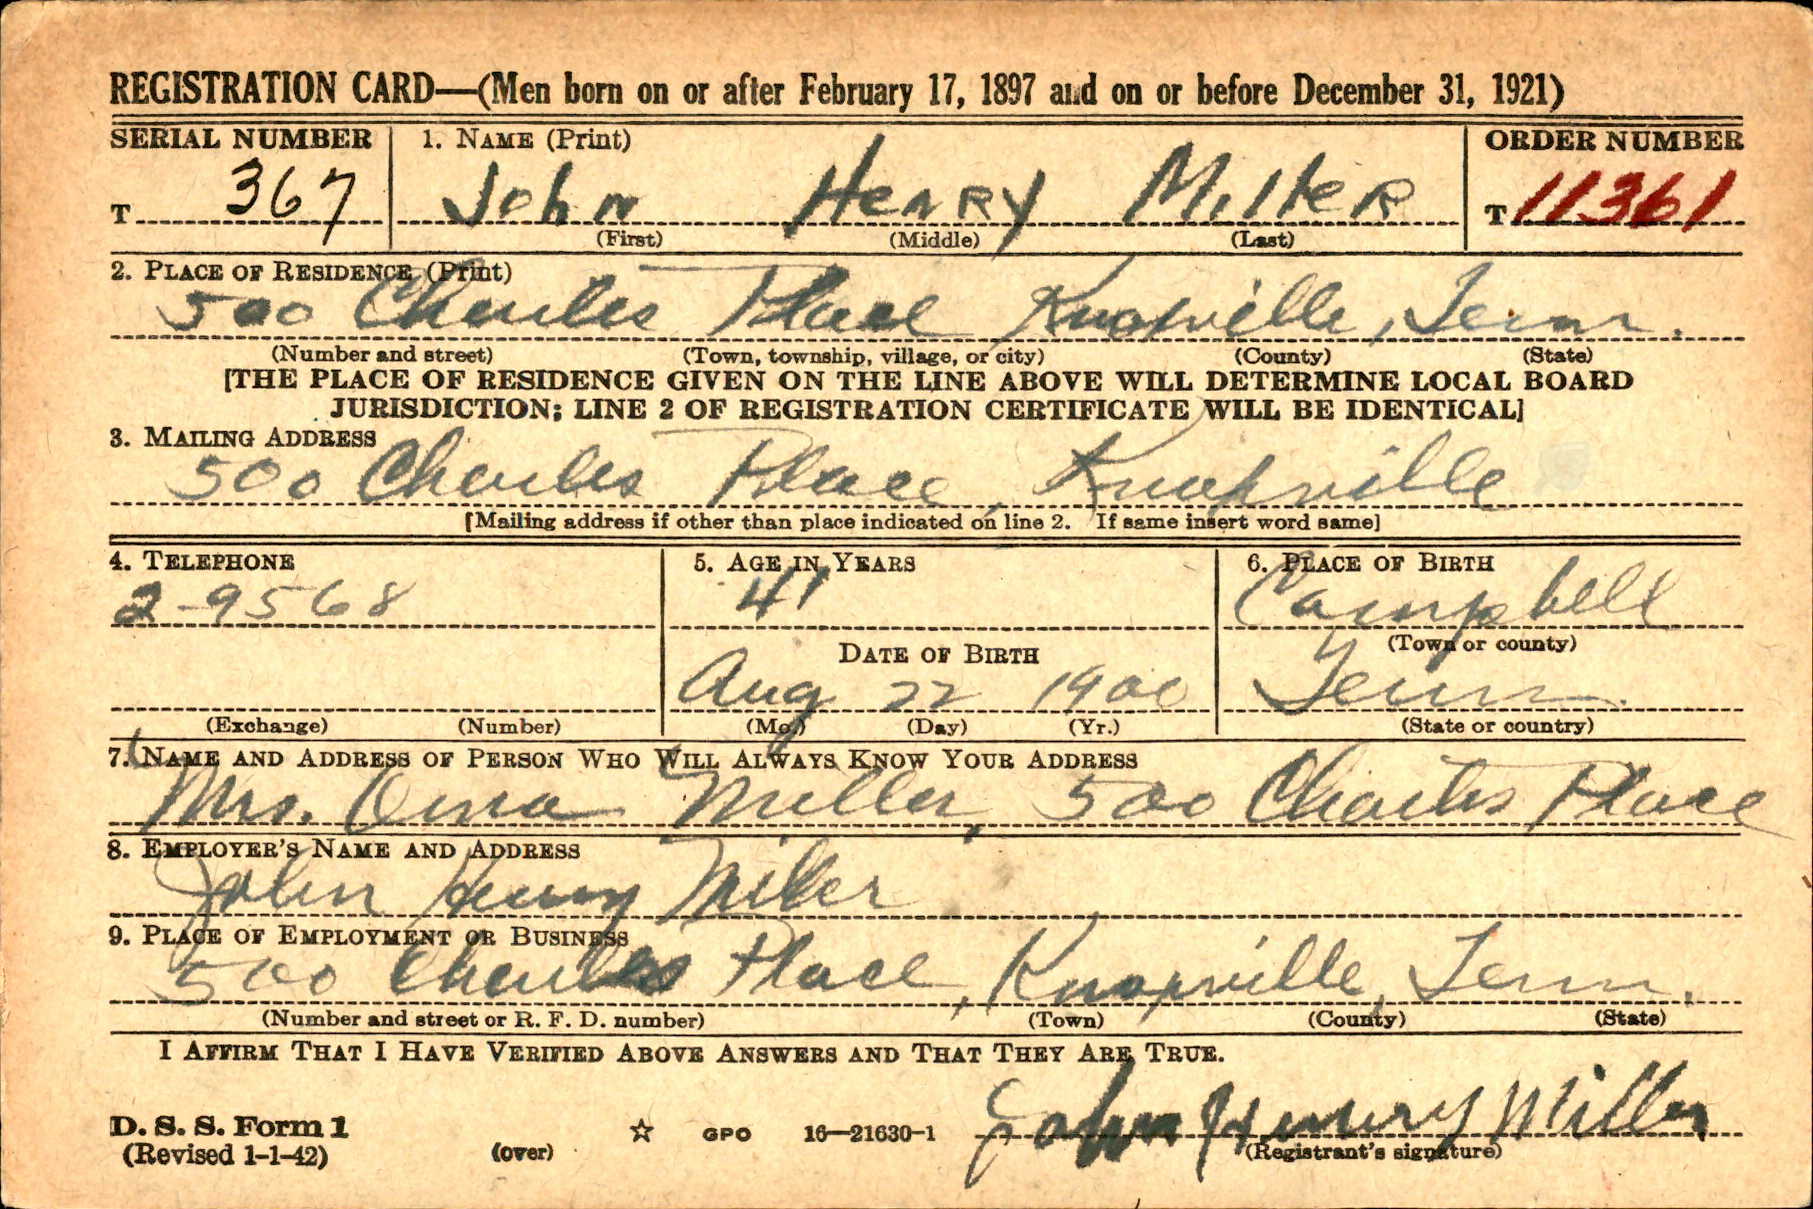 REGISTRATION CARD—(Men born on or after February 17, 1897 and on or before December 31, 1921)
SERIAL NUMBER 1. NAME (Print) ORDER NUMBER
T 367 John Henry Miller T 11361
(First) (Middle) (Last)
2. PLACE OF RESIDENCE (Print)
500 Charles Place Knoxville, Tenn.
(Number and street) (Town, township, village, or city) (County) (State)
[THE PLACE OF RESIDENCE GIVEN ON THE LINE ABOVE WILL DETERMINE LOCAL BOARD
JURISDICTION; LINE 2 OF REGISTRATION CERTIFICATE WILL BE IDENTICAL]
3. MAILING ADDRESS
500 Charles Place, Knoxville
[Mailing address if other than place indicated on line 2. If same insert word same]
4. TELEPHONE 5. AGE IN YEARS 6. PLACE OF BIRTH
2-9568 41 Campbell
DATE OF BIRTH (Town or county)
Aug 22 1900 Tenn.
(Exchange) (Number) (Mo.) (Day) (Yr.) (State or country)
7. NAME AND ADDRESS OF PERSON WHO WILL ALWAYS KNOW YOUR ADDRESS
Mrs. Miller, 500 Charles Place
8. EMPLOYER'S NAME AND ADDRESS
John Henry Miller
9. PLACE OF EMPLOYMENT OR BUSINESS
500 Charles Place, Knoxville, Tenn.
(Number and street or R. F. D. number) (Town) (County) (State)
I AFFIRM THAT I HAVE VERIFIED ABOVE ANSWERS AND THAT THEY ARE TRUE.
John Henry Miller
D. S. S. Form 1
(Revised 1-1-42) (over) ☆ GPO 16—21630-1 (Registrant's signature)